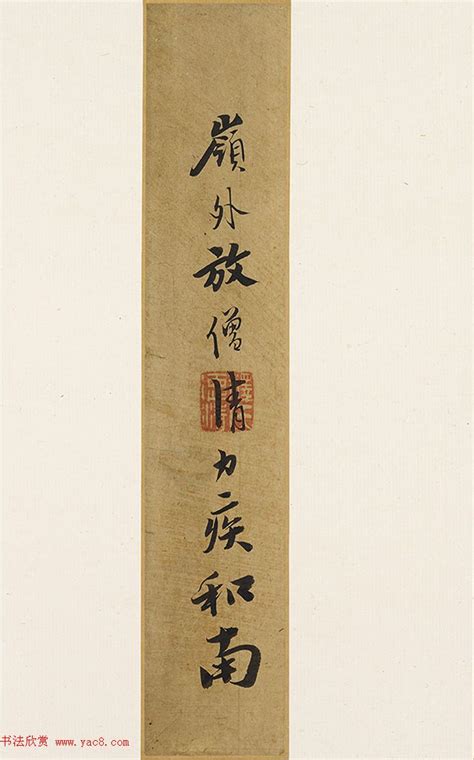 嶺外放僧清力疾和南
书法欣赏 www.yac8.com